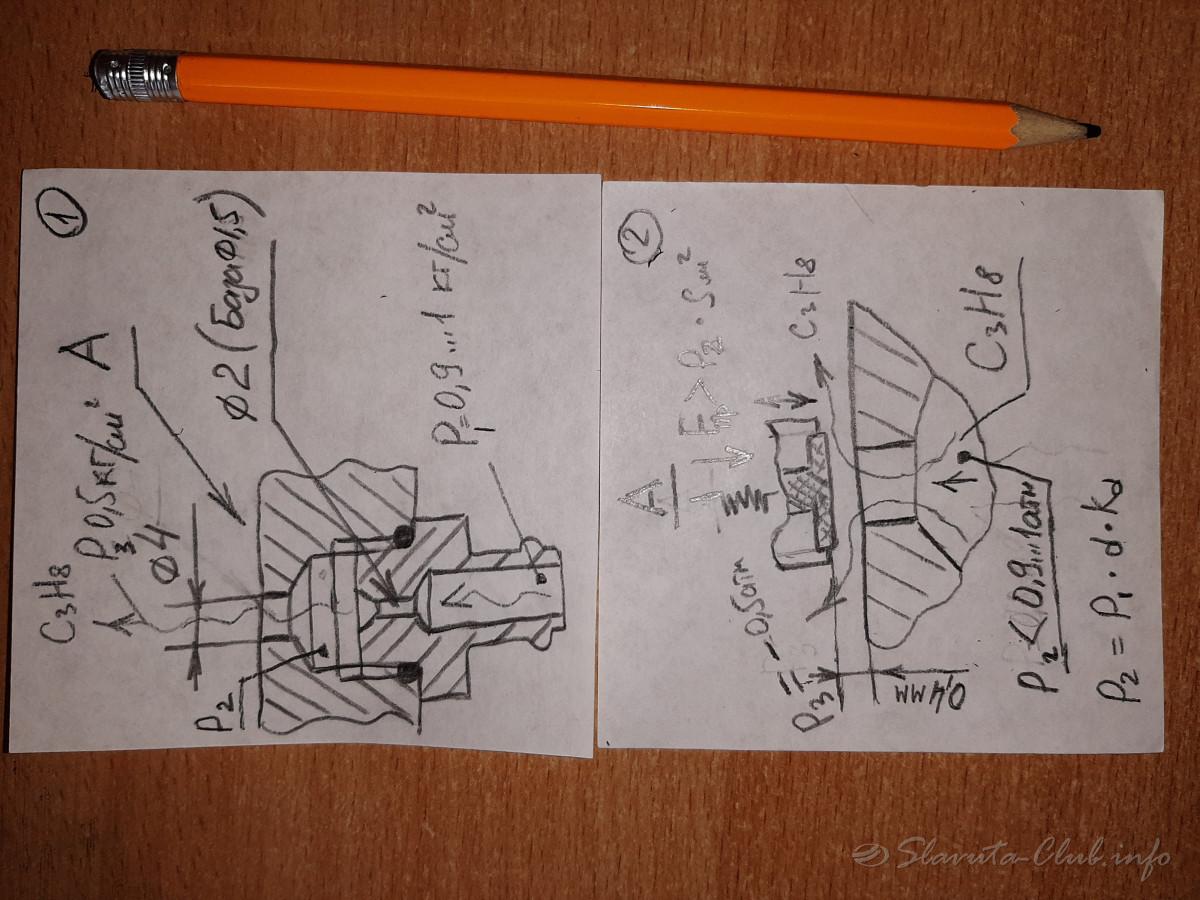 1
C₃H₈
P₃ 0,5 кг/см² A
⌀4
⌀2 (База ⌀1,5)
P₁=0,9...1 кг/см²
P₂
2
A
Fпр > P₂ · Sм²
C₃H₈
P₃ = -0,5атм
0,4мм
C₃H₈
P₂ < 0,9...1атм
P₂ = P₁ · d · kd
Slavuta-Club.info